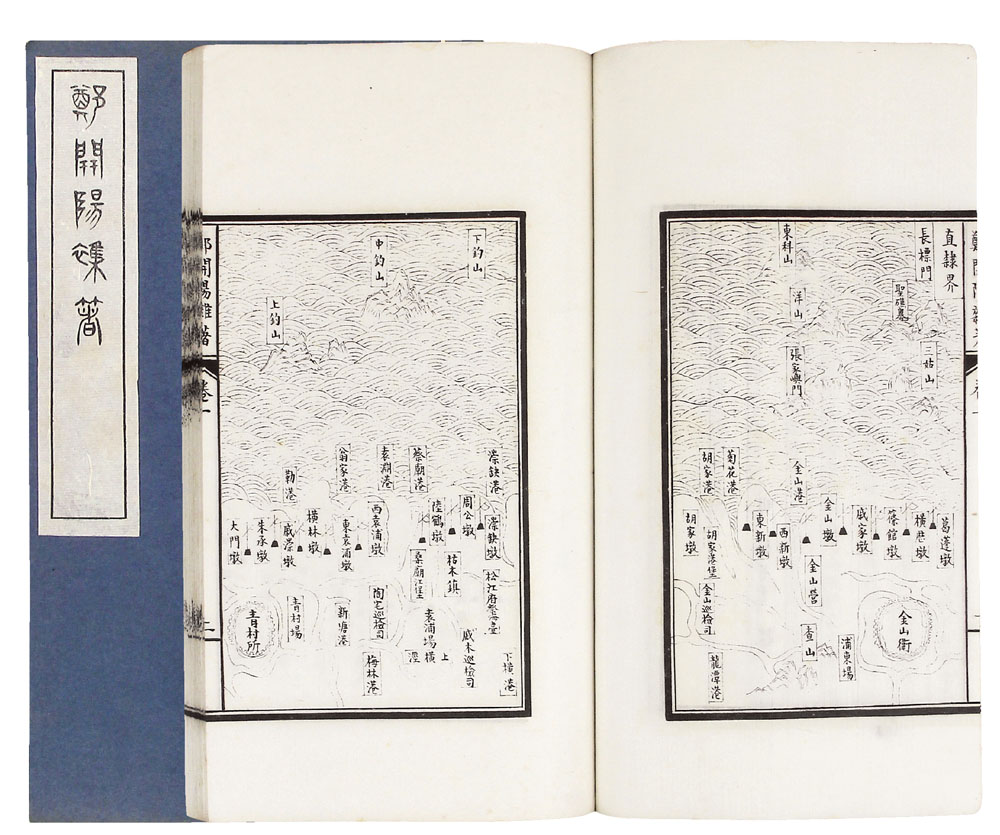 鄭開陽襍著
直隸界
長標門
聖礁寨
二姑山
東科山
洋山
張家嶼門
菊花港
胡家港
金山港
葛蓬墩
橫塘墩
篠館墩
戚家墩
金山墩
西新墩
東新墩
胡家墩
胡家港堡
金山營
金山巡檢司
金山衛
浦東場
查山
龍潭港
下釣山
中釣山
上釣山
漴缺港
蔡廟港
袁淵港
翁家港
勒港
漴缺墩
周公墩
陸鶴墩
西袁浦墩
東袁浦墩
橫林墩
戚漴墩
朱承墩
大門墩
枯木鎮
松江府
陶宅巡檢司
新塘港
青村場
青村所
袁浦場
戚木巡檢司
下橫港
上橫涇
梅林港
開陽雜著
卷一
二